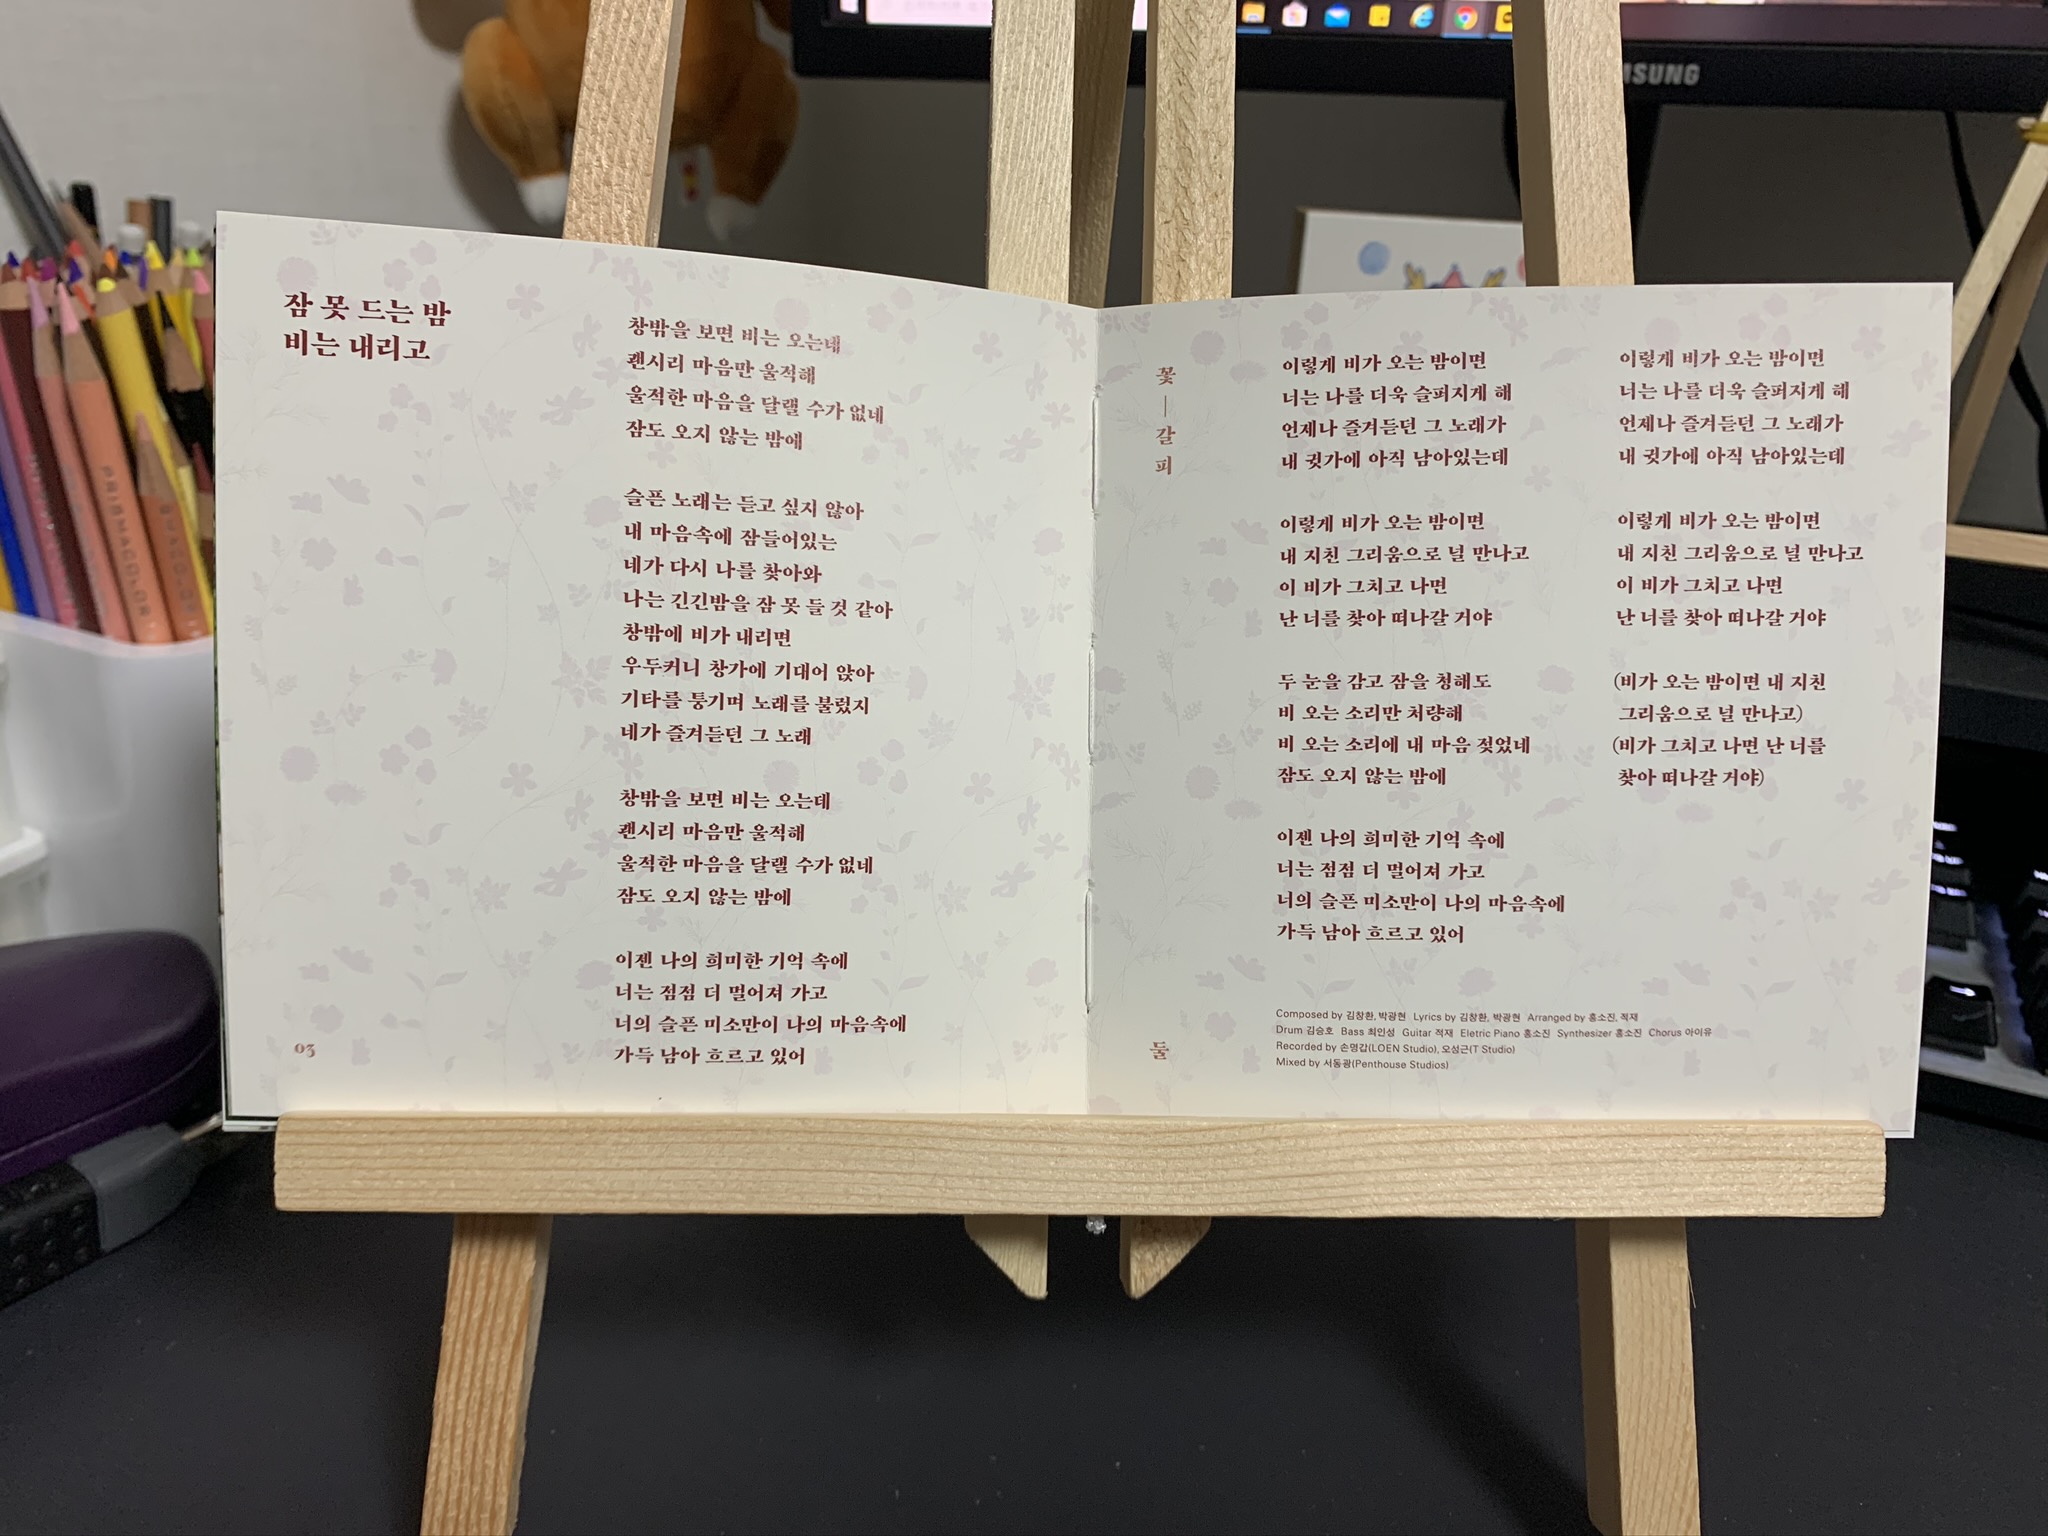 잠 못 드는 밤
비는 내리고
창밖을 보면 비는 오는데
괜시리 마음만 울적해
울적한 마음을 달랠 수가 없네
잠도 오지 않는 밤에
슬픈 노래는 듣고 싶지 않아
내 마음속에 잠들어있는
네가 다시 나를 찾아와
나는 긴긴밤을 잠 못 들 것 같아
창밖에 비가 내리면
우두커니 창가에 기대어 앉아
기타를 퉁기며 노래를 불렀지
네가 즐겨듣던 그 노래
창밖을 보면 비는 오는데
괜시리 마음만 울적해
울적한 마음을 달랠 수가 없네
잠도 오지 않는 밤에
이젠 나의 희미한 기억 속에
너는 점점 더 멀어져 가고
너의 슬픈 미소만이 나의 마음속에
가득 남아 흐르고 있어
03
꽃
갈
피
둘
이렇게 비가 오는 밤이면
너는 나를 더욱 슬퍼지게 해
언제나 즐겨듣던 그 노래가
내 귓가에 아직 남아있는데
이렇게 비가 오는 밤이면
내 지친 그리움으로 널 만나고
이 비가 그치고 나면
난 너를 찾아 떠나갈 거야
두 눈을 감고 잠을 청해도
비 오는 소리만 처량해
비 오는 소리에 내 마음 젖었네
잠도 오지 않는 밤에
이젠 나의 희미한 기억 속에
너는 점점 더 멀어져 가고
너의 슬픈 미소만이 나의 마음속에
가득 남아 흐르고 있어
이렇게 비가 오는 밤이면
너는 나를 더욱 슬퍼지게 해
언제나 즐겨듣던 그 노래가
내 귓가에 아직 남아있는데
이렇게 비가 오는 밤이면
내 지친 그리움으로 널 만나고
이 비가 그치고 나면
난 너를 찾아 떠나갈 거야
(비가 오는 밤이면 내 지친
그리움으로 널 만나고)
(비가 그치고 나면 난 너를
찾아 떠나갈 거야)
Composed by 김창환, 박광현 Lyrics by 김창환, 박광현 Arranged by 홍소진, 적재
Drum 김승호 Bass 최인성 Guitar 적재 Eletric Piano 홍소진 Synthesizer 홍소진 Chorus 아이유
Recorded by 손명갑(LOEN Studio), 오성근(T Studio)
Mixed by 서동광(Penthouse Studios)
PRISMACOLOR